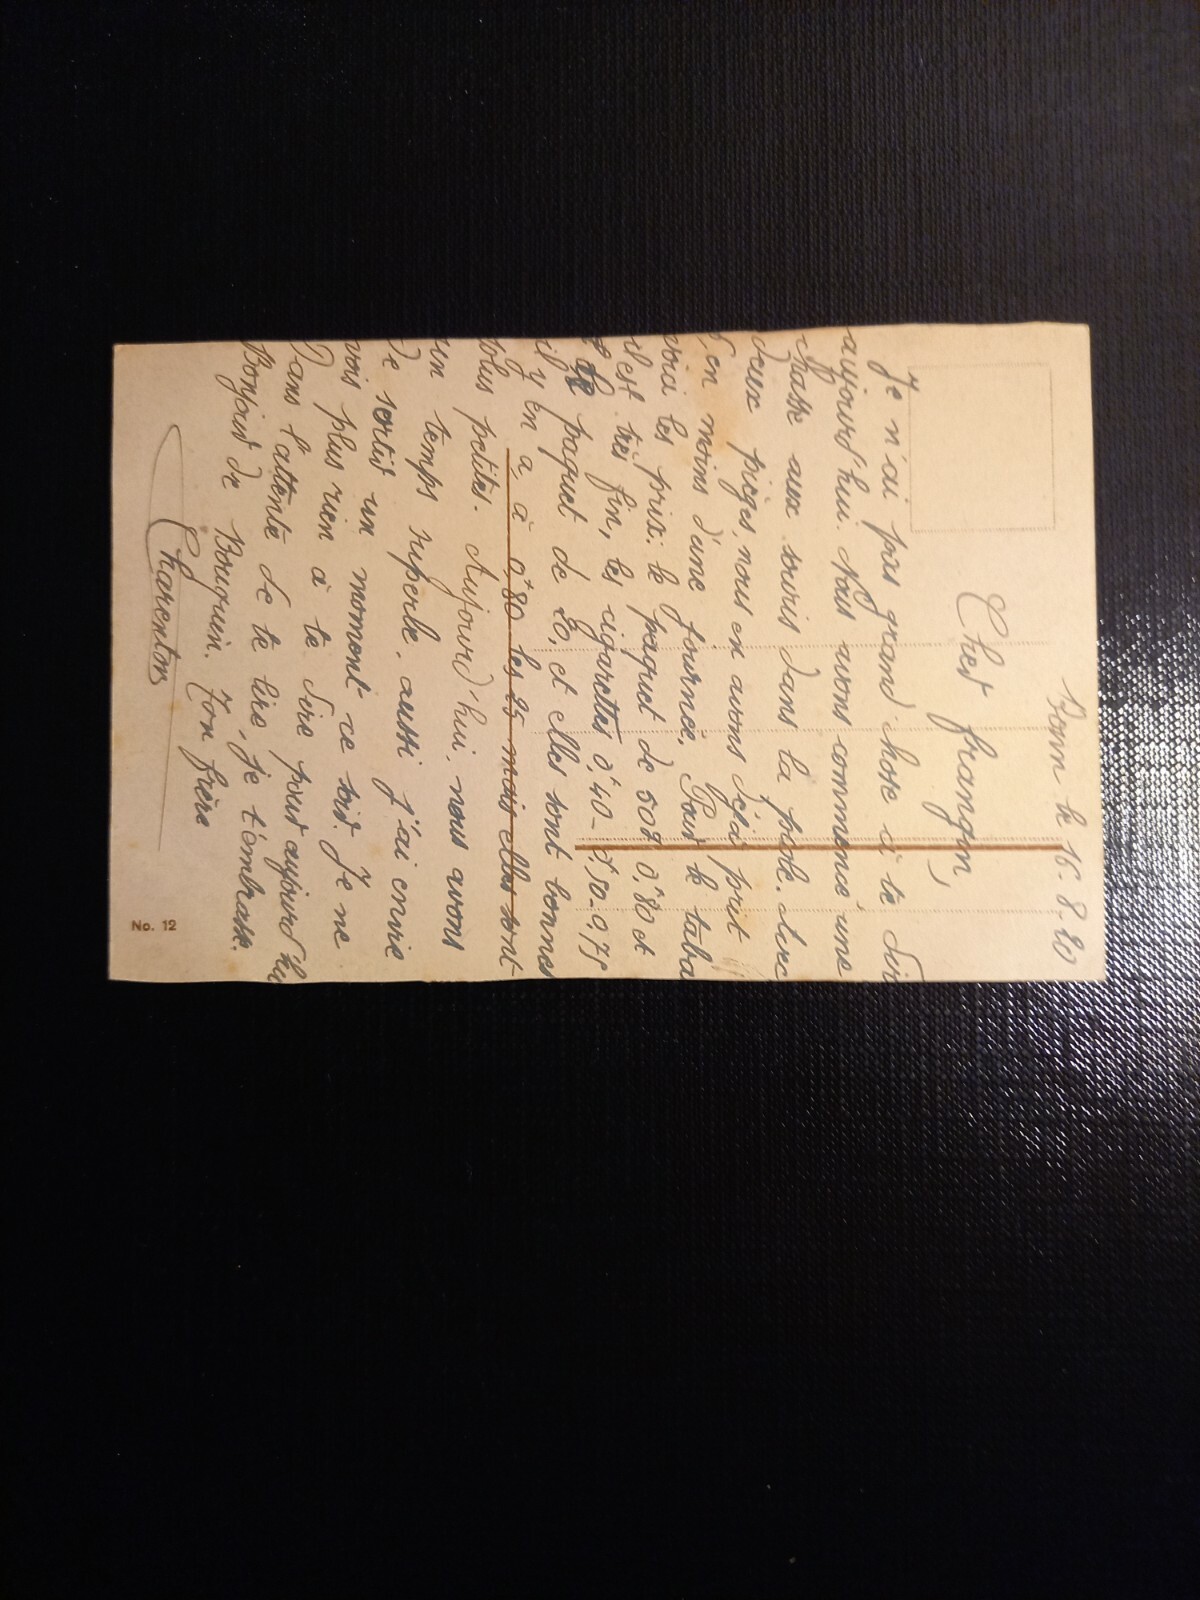 Bonn le 16.8.20
Cher frangin,
Je n'ai pas grand chose à te dire
aujourd'hui. Nous avons commencé une
chasse aux souris dans la piole. Avec
deux pièges nous en avons déjà prit
6 en moins d'une journée. Pour le taba
voici les prix: le paquet de 50g 0,80 et
il est très fin, les cigarettes 0,40 - 0,50 - 0,75
le paquet de 20, et elles sont bonnes
il y en a à 0,80 les 25 mais elles sont
plus petites. Aujourd'hui, nous avons
un temps superbe, aussi j'ai envie
de sortir un moment ce soir. Je ne
vois plus rien à te dire pour aujourd'hui
Dans l'attente de te lire, je t'embrasse.
Bonjour de Bouquin. Ton frère
Charenton
No. 12